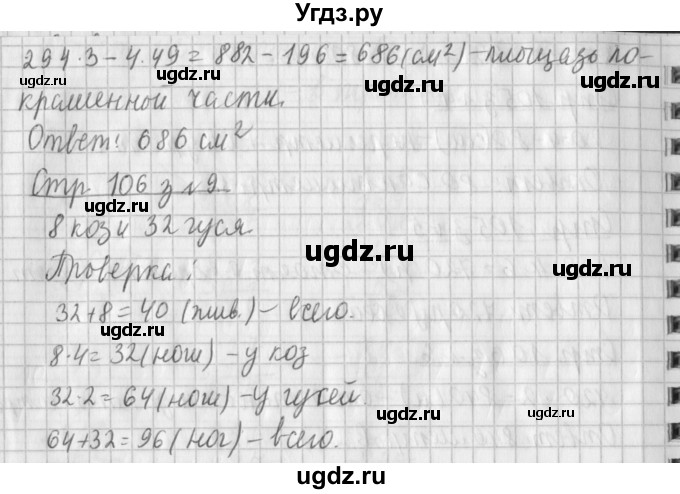 Угдз.ру
294·3-4·49=882-196=686(см²)-площадь по-
крашенной части.
Ответ: 686 см²
Стр 106 з №9
8 коз и 32 гуся.
Проверка:
32+8=40 (жив.) - всего.
8·4=32(ног) - у коз
32·2=64(ног) - у гусей.
64+32=96(ног) - всего.
ugdz.ru
ugdz.ru
ugdz.ru
ugdz.ru
ugdz.ru
ugdz.ru
ugdz.ru
ugdz.ru
ugdz.ru
ugdz.ru
ugdz.ru
ugdz.ru
ugdz.ru